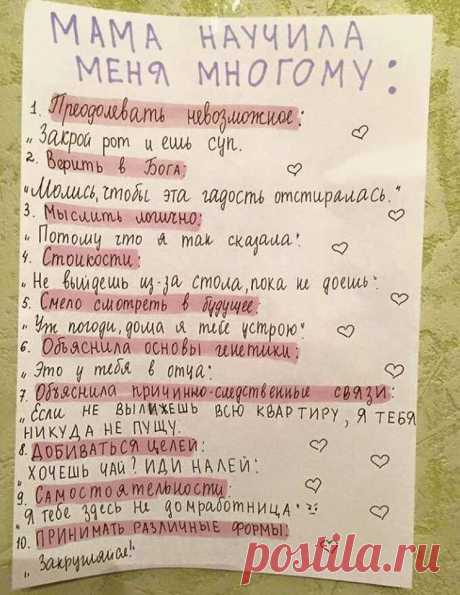 МАМА НАУЧИЛА
МЕНЯ МНОГОМУ:
1. Преодолевать невозможное:
„Закрой рот и ешь суп.
2. Верить в Бога:
„Молись, чтобы эта гадость отстиралась."
3. Мыслить логично:
„Потому что я так сказала".
4. Стойкости:
„Не выйдешь из-за стола, пока не доешь".
5. Смело смотреть в будущее:
„Уж погоди, дома я тебе устрою".
6. Объяснила основы генетики:
„Это у тебя в отца".
7. Объяснила причинно-следственные связи:
„Если не вылижешь всю квартиру, я тебя
никуда не пущу.
8. Добиваться целей:
„Хочешь чай? Иди налей".
9. Самостоятельности:
„Я тебе здесь не домработница"
10. Принимать различные формы:
„Закругляйся!"
postila.ru